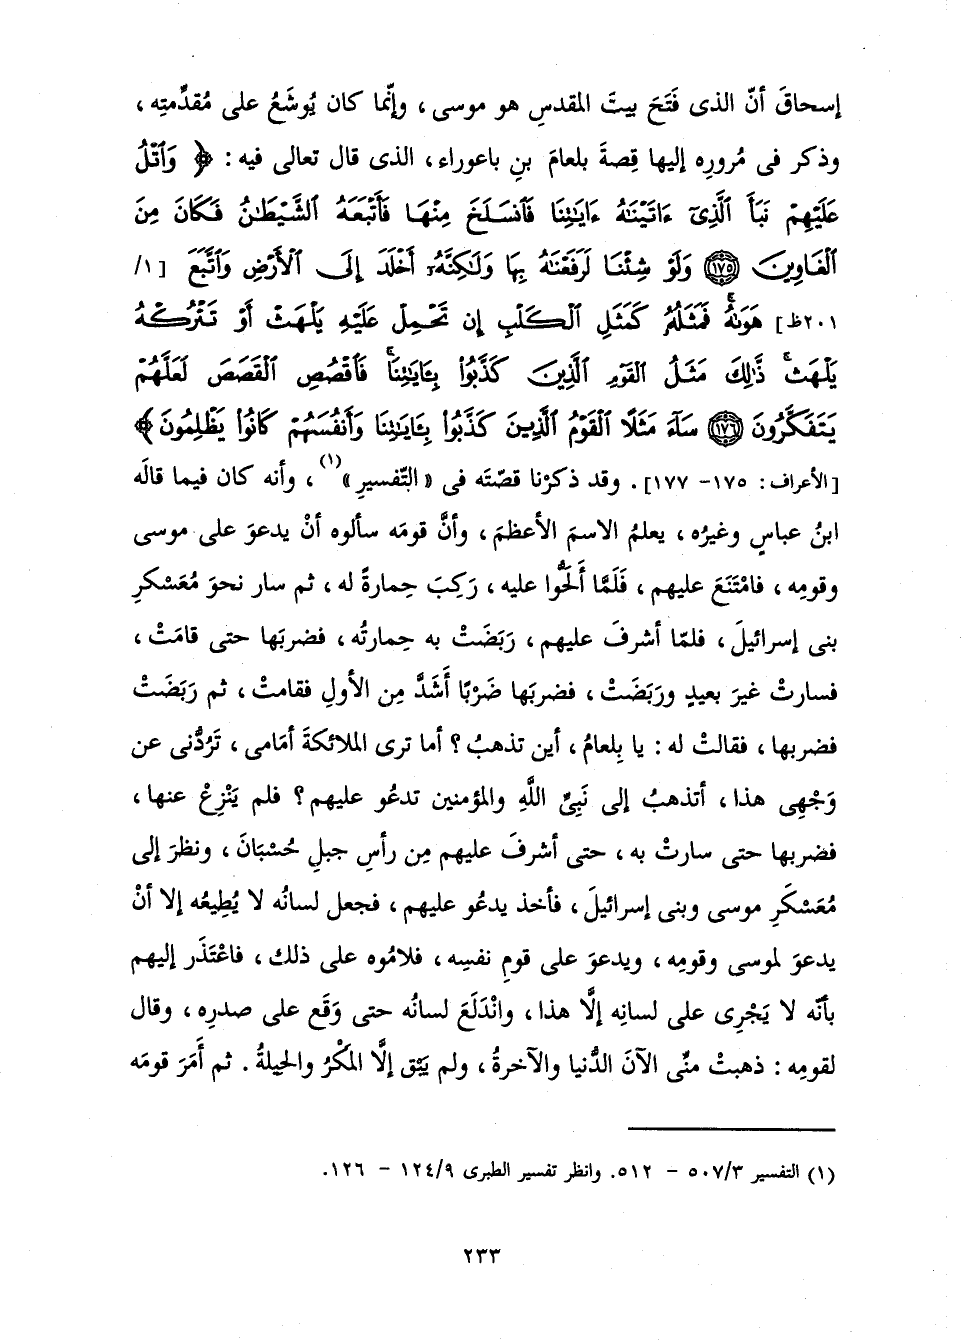 إسحاقَ أنّ الذى فَتَحَ بيتَ المقدسِ هو موسى ، وإنّما كان يُوشَعُ على مُقدِّمتِه ،
وذكر فى مُرورِه إليها قِصةَ بلعامَ بنِ باعوراء ، الذى قال تعالى فيه : ﴿ وَٱتْلُ
عَلَيْهِمْ نَبَأَ ٱلَّذِىٓ ءَاتَيْنَٰهُ ءَايَٰتِنَا فَٱنسَلَخَ مِنْهَا فَأَتْبَعَهُ ٱلشَّيْطَٰنُ فَكَانَ مِنَ
ٱلْغَاوِينَ ١٧٥ وَلَوْ شِئْنَا لَرَفَعْنَٰهُ بِهَا وَلَٰكِنَّهُۥٓ أَخْلَدَ إِلَى ٱلْأَرْضِ وَٱتَّبَعَ [ ١/
٢٠١ظ ] هَوَىٰهُۚ فَمَثَلُهُۥ كَمَثَلِ ٱلْكَلْبِ إِن تَحْمِلْ عَلَيْهِ يَلْهَثْ أَوْ تَتْرُكْهُ
يَلْهَثۚ ذَّٰلِكَ مَثَلُ ٱلْقَوْمِ ٱلَّذِينَ كَذَّبُوا۟ بِـَٔايَٰتِنَاۚ فَٱقْصُصِ ٱلْقَصَصَ لَعَلَّهُمْ
يَتَفَكَّرُونَ ١٧٦ سَآءَ مَثَلًا ٱلْقَوْمُ ٱلَّذِينَ كَذَّبُوا۟ بِـَٔايَٰتِنَا وَأَنفُسَهُمْ كَانُوا۟ يَظْلِمُونَ ﴾
[الأعراف : ١٧٥- ١٧٧] . وقد ذكرْنا قصّتَه فى « التّفسيرِ »(١) ، وأنه كان فيما قالَه
ابنُ عباسٍ وغيرُه ، يعلمُ الاسمَ الأعظمَ ، وأنَّ قومَه سألوه أنْ يدعوَ على موسى
وقومِه ، فامْتَنَعَ عليهم ، فَلَمَّا أَلَحُّوا عليه ، رَكِبَ حِمارةً له ، ثم سار نحوَ مُعَسْكرِ
بنى إسرائيلَ ، فلمّا أشرفَ عليهم ، رَبَضَتْ به حِمارتُه ، فضربَها حتى قامَتْ ،
فسارتْ غيرَ بعيدٍ ورَبَضَتْ ، فضربَها ضَرْبًا أَشَدَّ مِن الأولِ فقامتْ ، ثم رَبَضَتْ
فضربها ، فقالتْ له : يا بِلعامُ ، أين تذهبُ ؟ أما ترى الملائكةَ أمَامى ، تَرُدُّنى عن
وَجْهِى هذا ، أتذهبُ إلى نَبِىِّ اللَّهِ والمؤمنين تدعُو عليهم ؟ فلم يَنْزِعْ عنها ،
فضربها حتى سارتْ به ، حتى أشرفَ عليهم مِن رأسِ جبلِ حُسْبَانَ ، ونظرَ إلى
مُعَسْكَرِ موسى وبنى إسرائيلَ ، فأخذ يدعُو عليهم ، فجعل لسانُه لا يُطِيعُه إلا أنْ
يدعوَ لموسى وقومِه ، ويدعوَ على قومِ نفسِه ، فلامُوه على ذلك ، فاعْتَذَر إليهم
بأنّه لا يَجْرِى على لسانِه إلَّا هذا ، وانْدَلَعَ لسانُه حتى وَقَع على صدرِه ، وقال
لقومِه : ذهبتْ منِّى الآنَ الدُّنيا والآخرةُ ، ولم يَبْق إلَّا المَكْرُ والحيلةُ . ثم أَمَرَ قومَه
(١) التفسير ٥٠٧/٣ - ٥١٢. وانظر تفسير الطبرى ١٢٤/٩ - ١٢٦.
٢٣٣